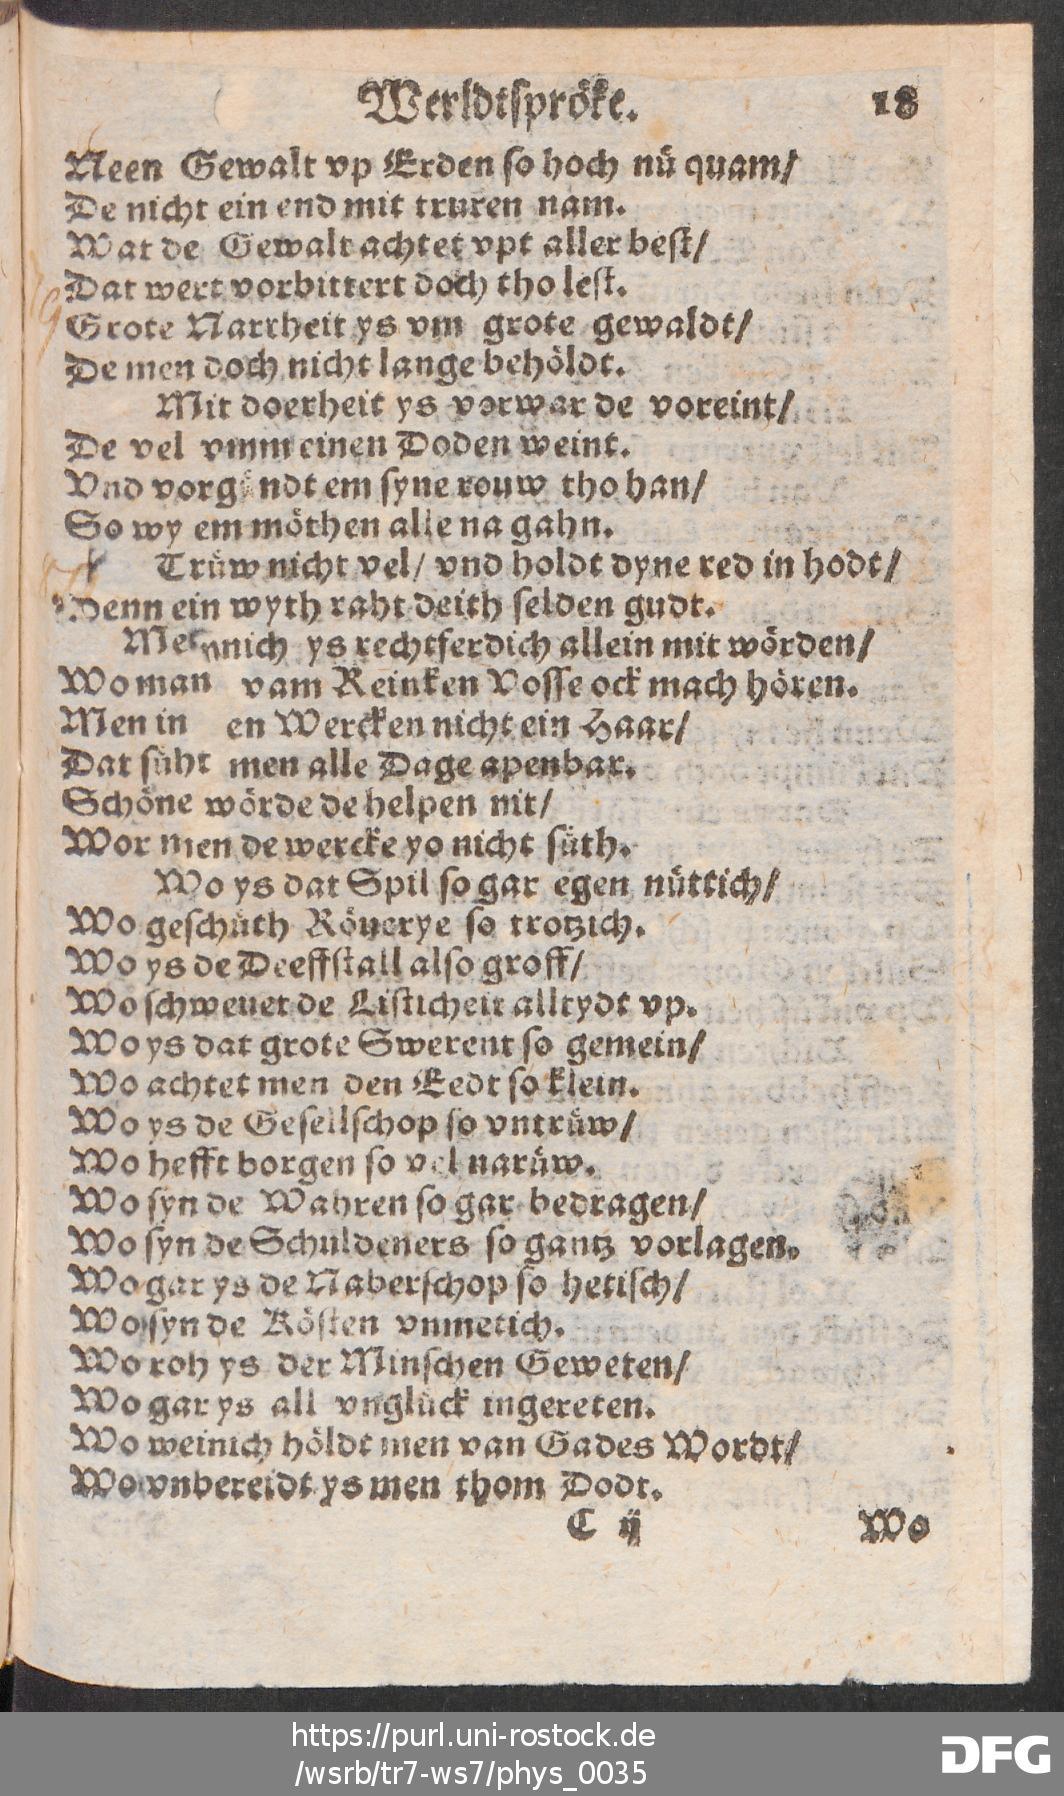 Werldtspröke. 18
Neen Gewalt vp Erden so hoch nü quam/
De nicht ein end mit truren nam.
Wat de Gewalt achtet vpt aller best/
Dat wert vorbittert doch tho lest.
Grote Narrheit ys vm grote gewaldt/
De men doch nicht lange behöldt.
Mit doerheit ys vorwar de voreint/
De vel vmm einen Doden weint.
Vnd vorgündt em syne rouw tho han/
So wy em möthen alle na gahn.
Trüw nicht vel/ vnd holdt dyne red in hodt/
Denn ein wyth raht deith selden gudt.
Mennich ys rechtferdich allein mit wörden/
Wo man vam Reinken Vosse ock mach hören.
Men in en Wercken nicht ein Haar/
Dat süht men alle Dage apenbar.
Schöne wörde de helpen nit/
Wor men de wercke yo nicht süth.
Wo ys dat Spil so gar egen nüttich/
Wo geschüth Röuerye so trotzich.
Wo ys de Deeffstall also groff/
Wo schweuet de Listicheit alltydt vp.
Wo ys dat grote Swerent so gemein/
Wo achtet men den Eedt so klein.
Wo ys de Gesellschop so vntrüw/
Wo hefft borgen so vel narüw.
Wo syn de Wahren so gar bedragen/
Wo syn de Schuldeners so gantz vorlagen.
Wo gar ys de Naberschop so hetisch/
Wo syn de Kösten vnmetich.
Wo roh ys der Minschen Geweten/
Wo gar ys all vnglück ingereten.
Wo weinich höldt men van Gades Wordt/
Wo vnbereidt ys men thom Dodt.
C ij Wo
https://purl.uni-rostock.de
/wsrb/tr7-ws7/phys_0035
DFG